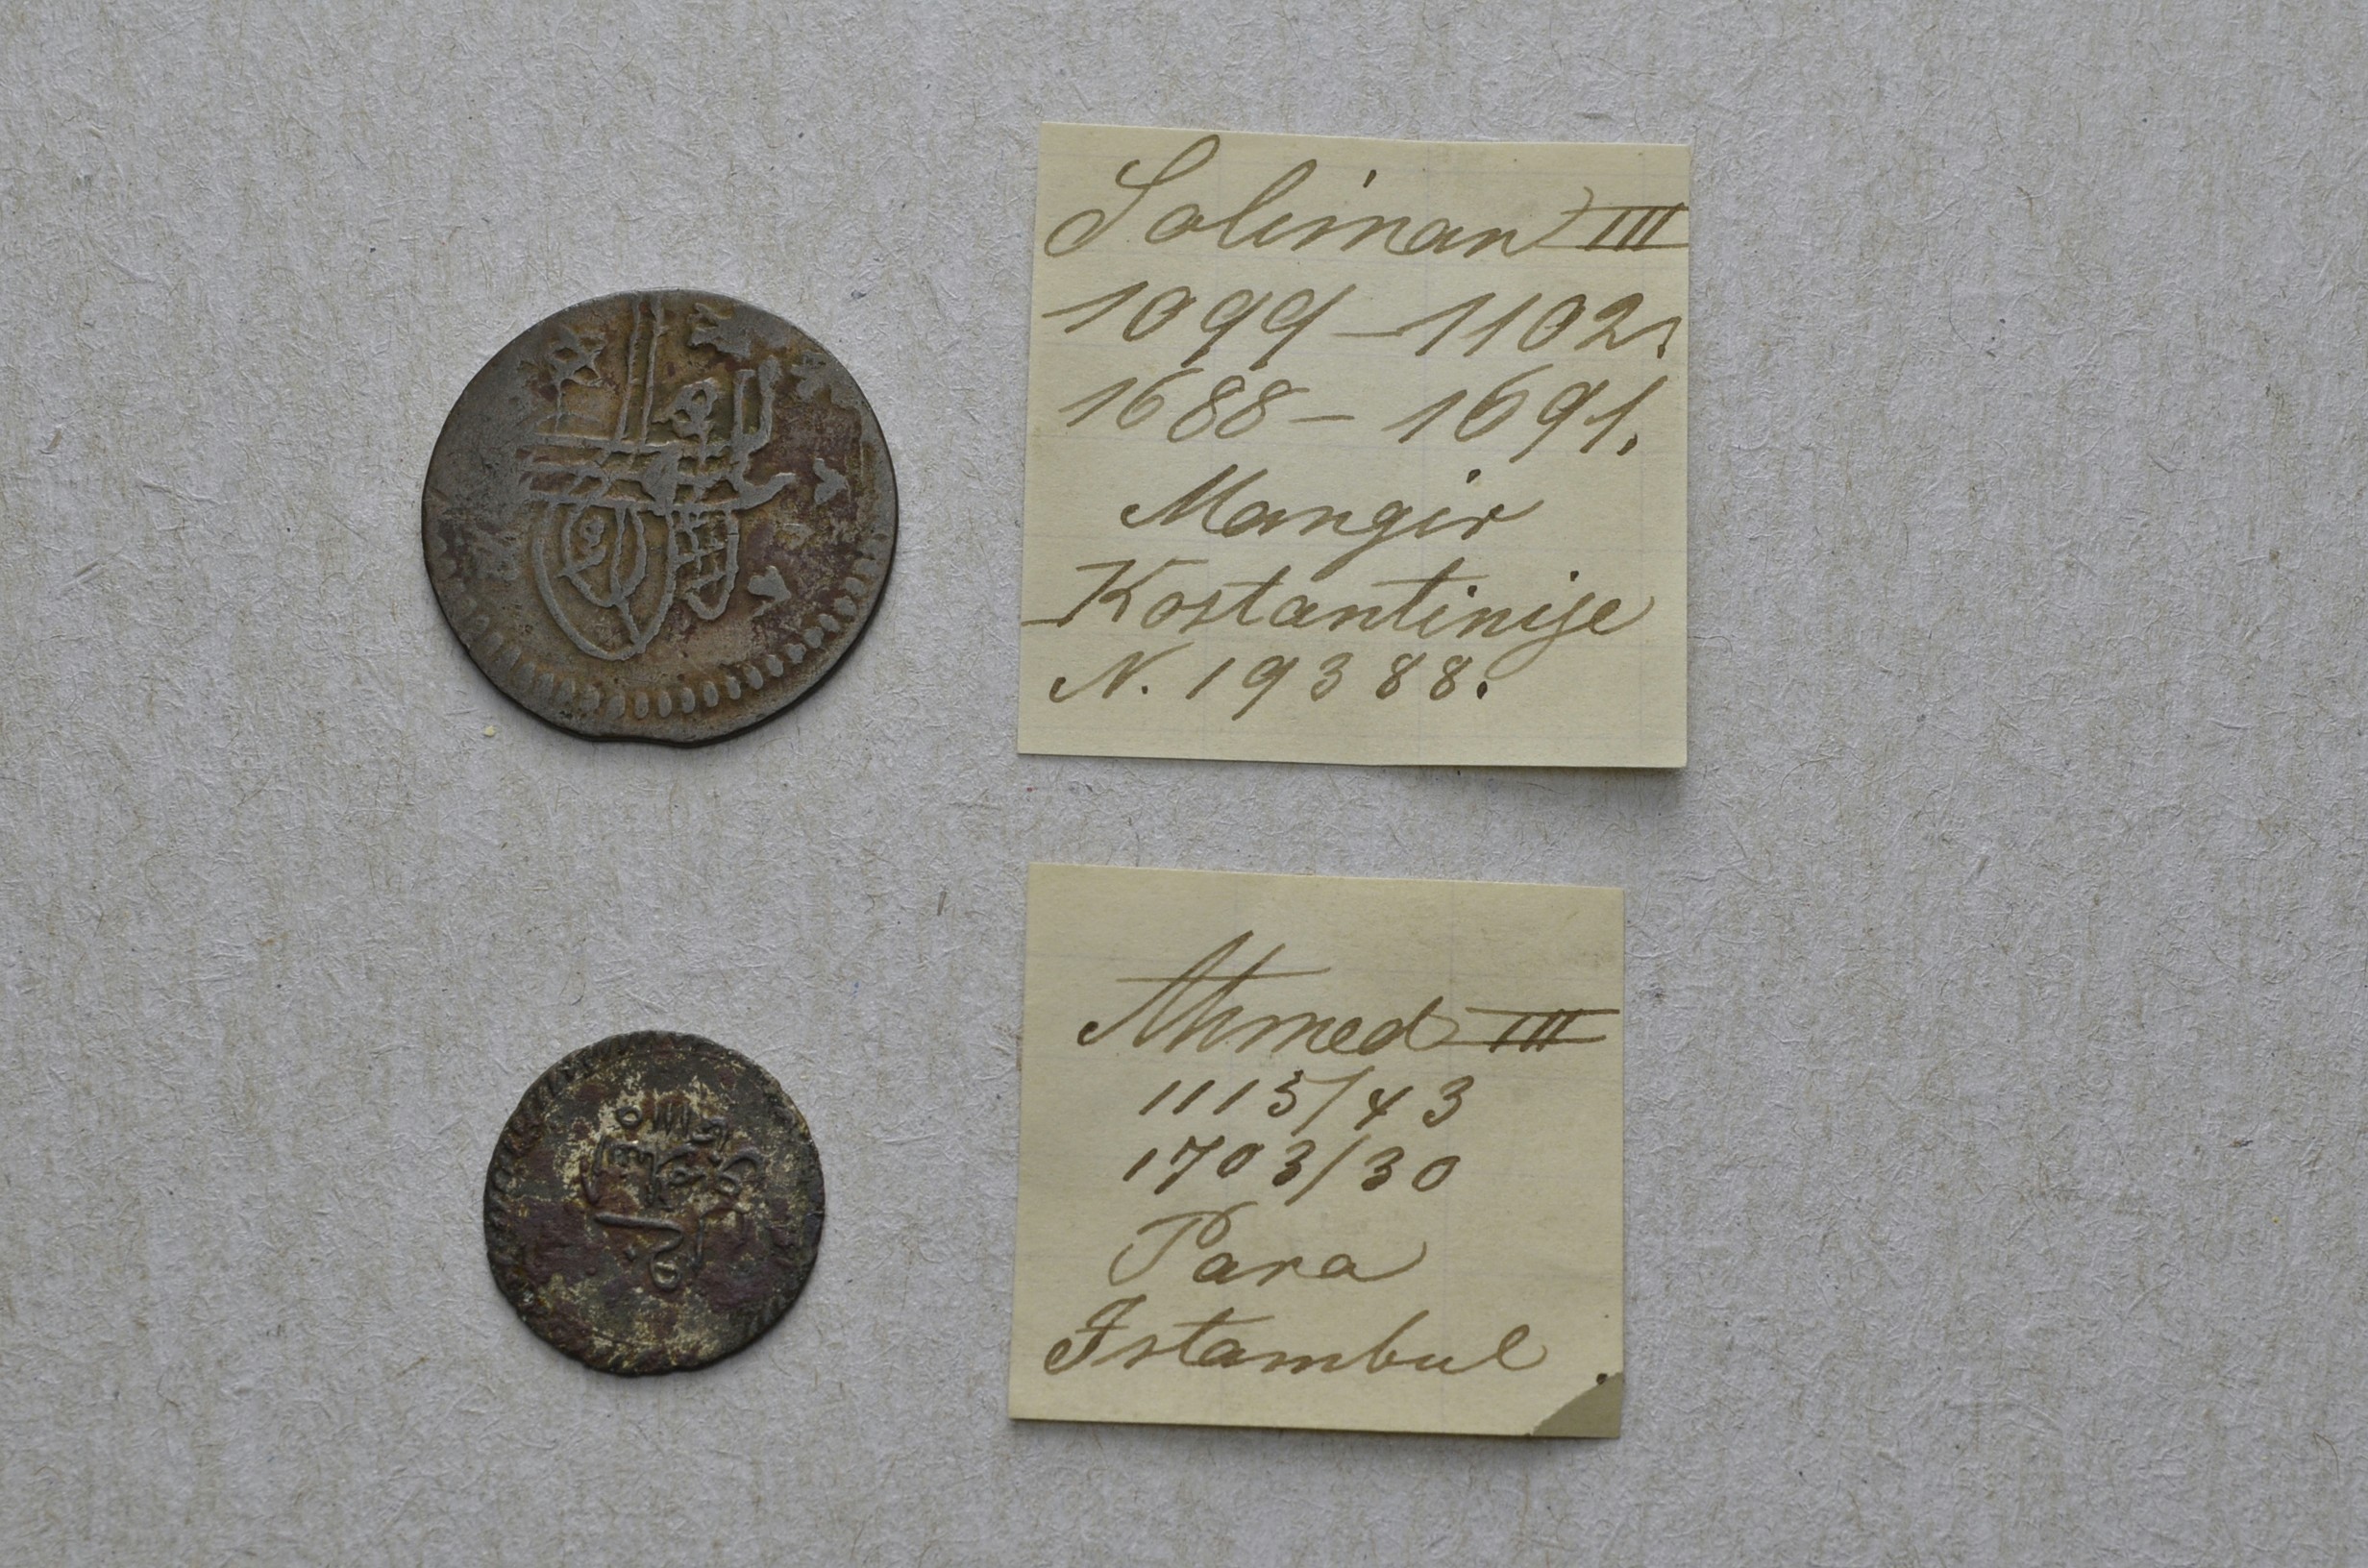 Soliman III
1099-1102.
1688-1691.
Mangir
Kostantinije
N. 19388.
Ahmed III
1115/43
1703/30
Para
Istambul.